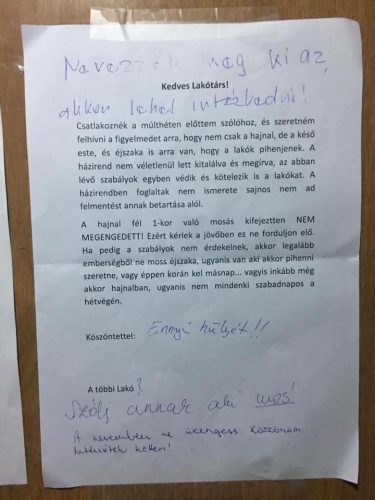 Nevezzék meg ki az,
Kedves Lakótárs!
akkor lehet intézkedni!
Csatlakoznék a múlthéten előttem szólóhoz, és szeretném
felhívni a figyelmedet arra, hogy nem csak a hajnal, de a késő
este, és éjszaka is arra van, hogy a lakók pihenjenek. A
házirend nem véletlenül lett kitalálva és megírva, az abban
lévő szabályok egyben védik és kötelezik is a lakókat. A
házirendben foglaltak nem ismerete sajnos nem ad
felmentést annak betartása alól.
A hajnal fél 1-kor való mosás kifejeztten NEM
MEGENGEDETT! Ezért kérlek a jövőben ez ne forduljon elő.
Ha pedig a szabályok nem érdekelnek, akkor legalább
emberségből ne moss éjszaka, ugyanis van aki akkor pihenni
szeretne, vagy éppen korán kel másnap... vagyis inkább még
akkor hajnalban, ugyanis nem mindenki szabadnapos a
hétvégén.
Köszöntettel: Ennyi hülyét!!
A többi Lakó?
Szólj annak aki mos!
A nevemben ne üzengess. Köszönöm